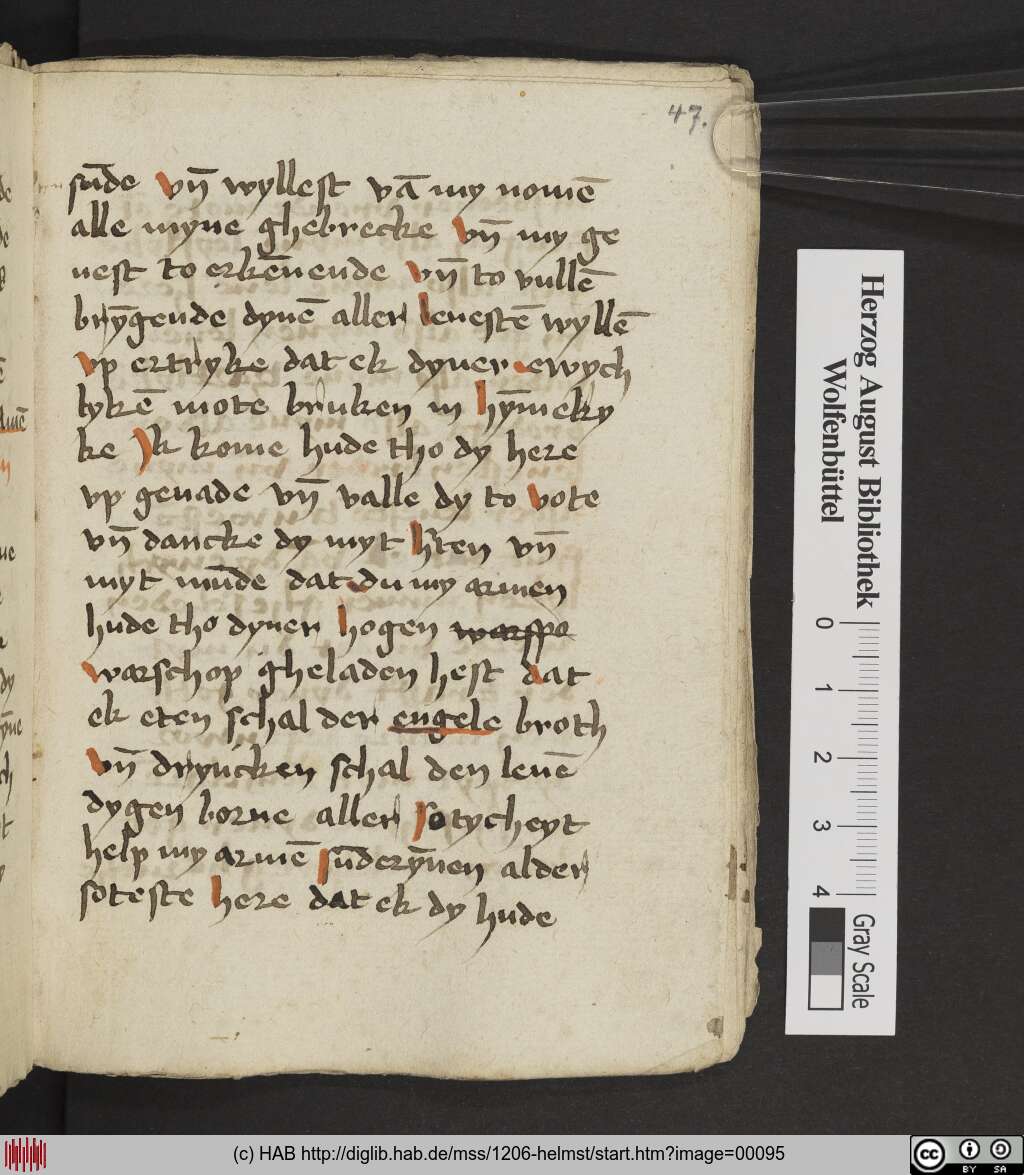 47.
sūde vn̄ wyllest vā my nomē
alle myne ghebrecke vn̄ my ge
uest to erkēnende vn̄ to vullē
brȳgende dynē aller leuestē wyllē
vp ertryke dat ek dyner ewych
lykē mote bruken in hȳmeky
ke Jk kome hude tho dy here
vp genade vn̄ valle dy to vote
vn̄ dancke dy myt hten vn̄
myt mūde dat du my armen
hude tho dyner hogen warspo
warschop gheladen hest dat
ek eten schal der engele broth
vn̄ dryncken schal den leuē
dygen borne aller sotycheyt
help my armē sūderȳnen alder
soteste here dat ek dy hude
Herzog August Bibliothek
Wolfenbüttel
0 1 2 3 4
Gray Scale
(c) HAB http://diglib.hab.de/mss/1206-helmst/start.htm?image=00095
cc BY SA